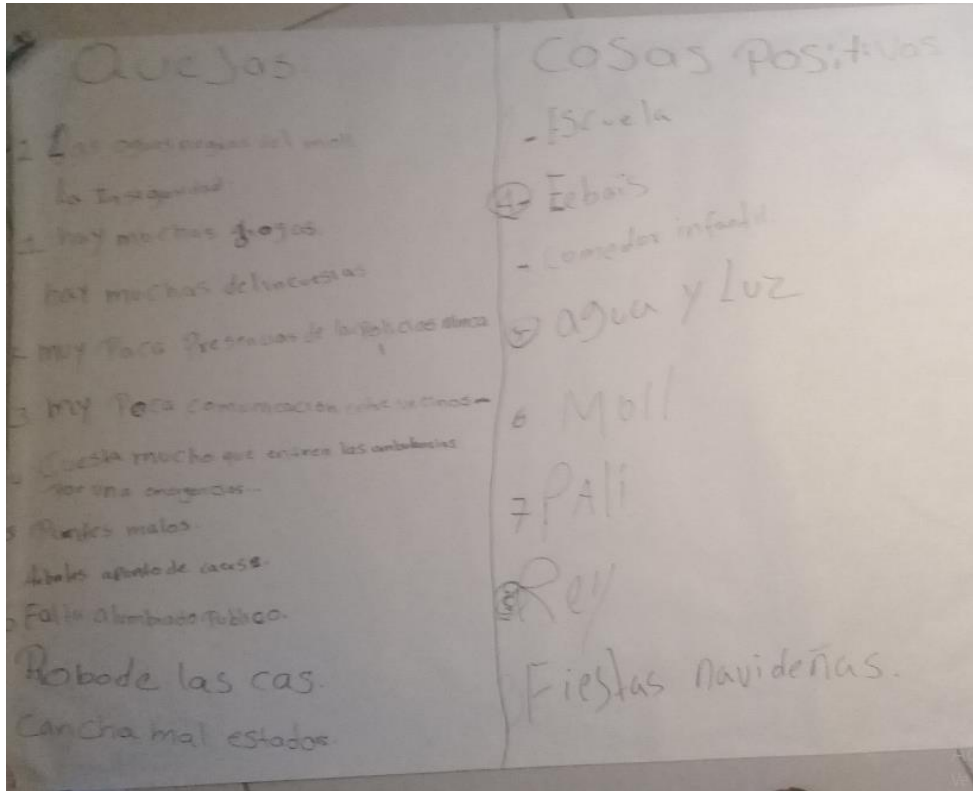 Quejas
2 Las del moll
la Inseguridad
1 hay muchas drogas.
hay muchas delincuesias
muy Poca Presencias de la Policias
3 my Poca comunicación vecinos-
Cuesta mucho que entren las ambulancias
por una emergencias-
5 Puentes malos.
árboles apunto de caerse.
Falta alumbrado Publico.
Robo de las cas.
Cancha mal estados.
Cosas Positivas
- Escuela
4- Eebais
- Comedor infantil
5 agua y Luz
6 Moll
7 PAli
8 Rey
Fiestas navideñas.